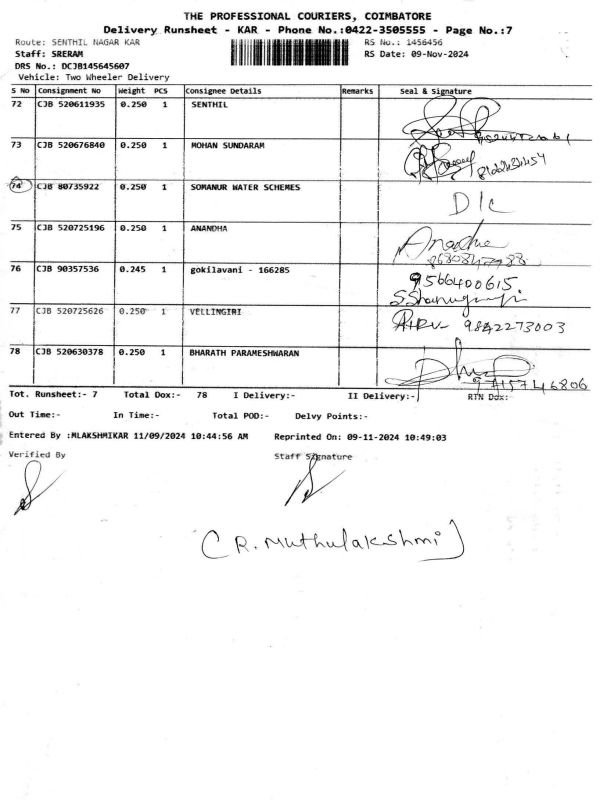 THE PROFESSIONAL COURIERS, COIMBATORE
Delivery Runsheet - KAR - Phone No.:0422-3505555 - Page No.:7
Route: SENTHIL NAGAR KAR RS No.: 1456456
Staff: SRERAM RS Date: 09-Nov-2024
DRS No.: DCJB145645607
Vehicle: Two Wheeler Delivery
S No Consignment No Weight PCS Consignee Details Remarks Seal & Signature
72 CJB 520611935 0.250 1 SENTHIL
73 CJB 520676840 0.250 1 MOHAN SUNDARAM
74 CJB 80735922 0.250 1 SOMANUR WATER SCHEMES D/C
75 CJB 520725196 0.250 1 ANANDHA
76 CJB 90357536 0.245 1 gokilavani - 166285 9566400615
77 CJB 520725626 0.250 1 VELLINGIRI 9842273003
78 CJB 520630378 0.250 1 BHARATH PARAMESHWARAN 9715746806
Tot. Runsheet:- 7 Total Dox:- 78 I Delivery:- II Delivery:- RTN Dox:-
Out Time:- In Time:- Total POD:- Delvy Points:-
Entered By :MLAKSHMIKAR 11/09/2024 10:44:56 AM Reprinted On: 09-11-2024 10:49:03
Verified By Staff Signature
(R. Muthulakshmi)